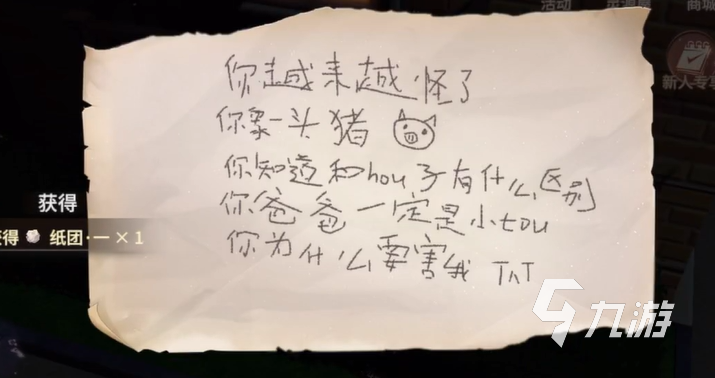 活动
商城
新人专享
你越来越怪了
你象一头猪
你知道和hou子有什么区别
你爸爸一定是小tou
你为什么要害我 TnT
获得
获得 纸团·一 × 1
九游